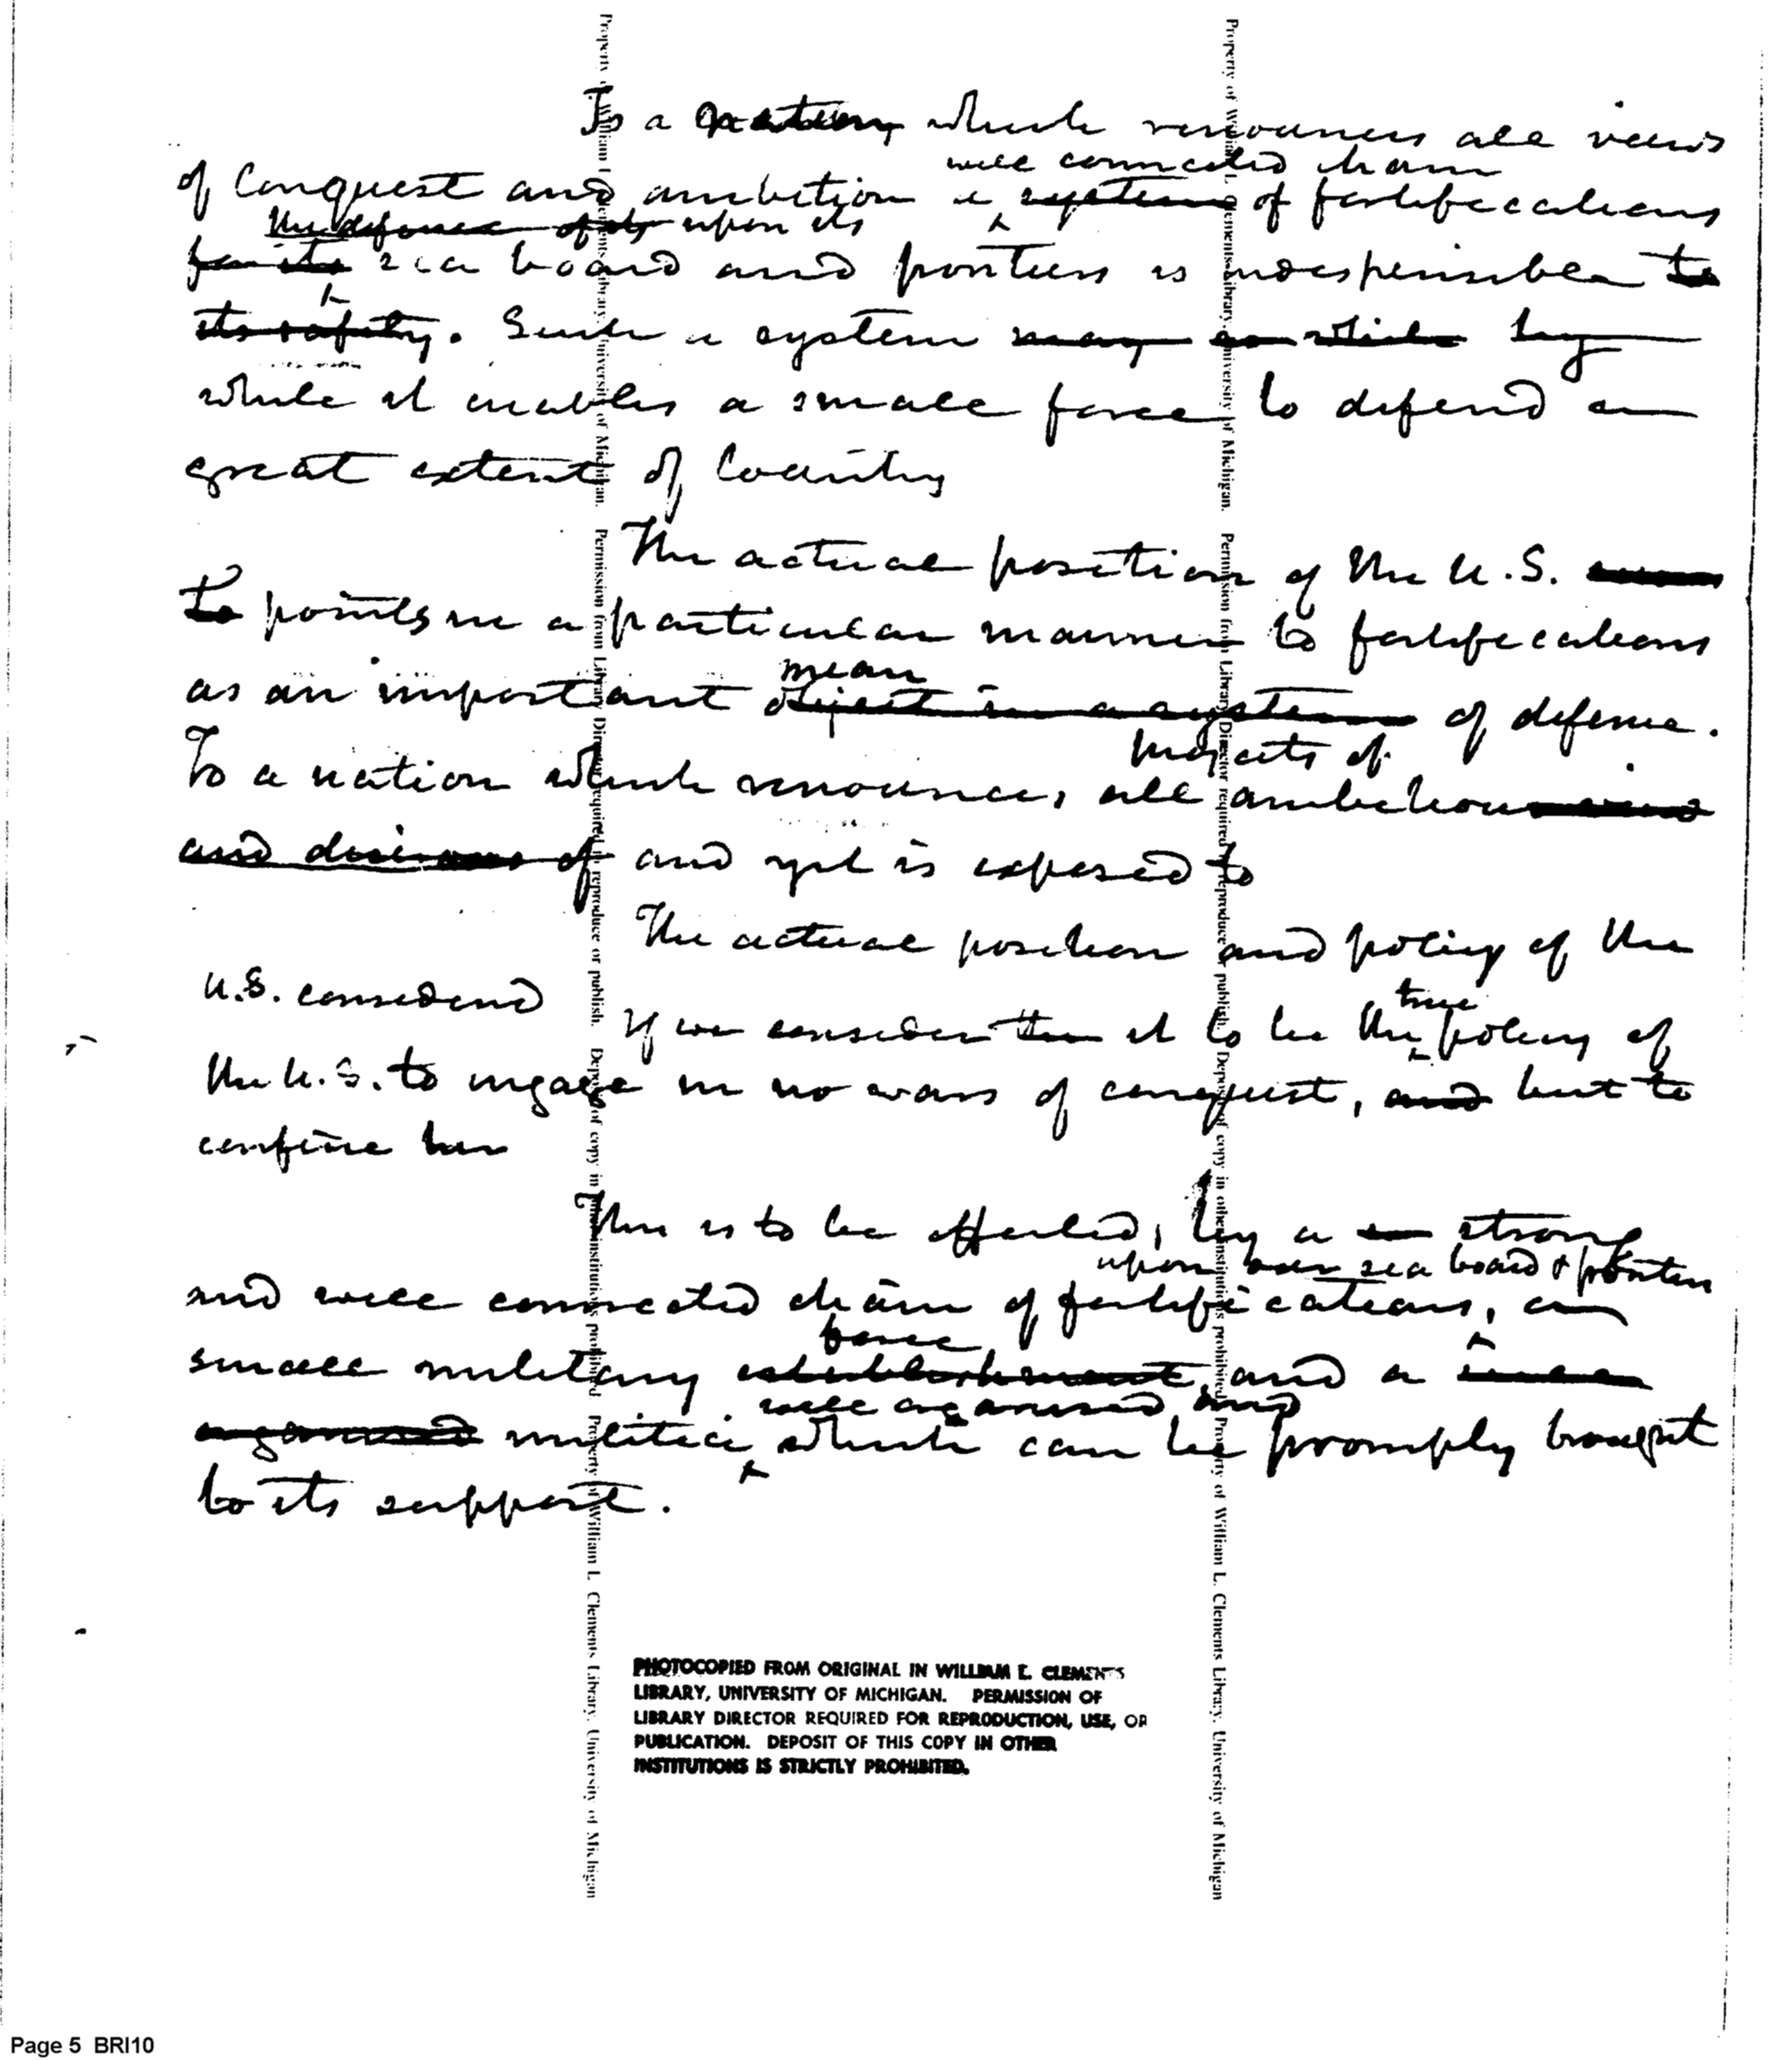 To a nation which renounces all views
well connected chain
of Conquest and ambition a system of fortifications
the defence of its upon its
for its sea board and frontiers is indespensible to
its safety. Such a system may as while by
while it enables a small force to defend a
great extent of Country
The actual position of the U.S.
to points in a particular manner to fortifications
mean
as an important object in a system of defence.
projects of
To a nation which renounces, all ambitious
and of and yet is exposed to
The actual position and policy of the
U.S. considered
true
If we consider the it to be the policy of
the U.S. to ingage in no wars of conquest, and but to
confine her
This is to be effected, by a strong
upon our sea board & frontier
and well connected chain of fortifications, a
force
small military establishment, and a
well organised and
organised militia which can be promply brought
to its support.
PHOTOCOPIED FROM ORIGINAL IN WILLIAM L. CLEMENTS
LIBRARY, UNIVERSITY OF MICHIGAN. PERMISSION OF
LIBRARY DIRECTOR REQUIRED FOR REPRODUCTION, USE, OR
PUBLICATION. DEPOSIT OF THIS COPY IN OTHER
INSTITUTIONS IS STRICTLY PROHIBITED.
Property of William L. Clements Library, University of Michigan. Permission from Library Director required to reproduce or publish. Deposit of copy in other institutions prohibited. Property of William L. Clements Library, University of Michigan
Property of William L. Clements Library, University of Michigan. Permission from Library Director required to reproduce or publish. Deposit of copy in other institutions prohibited. Property of William L. Clements Library, University of Michigan
Page 5 BRI10